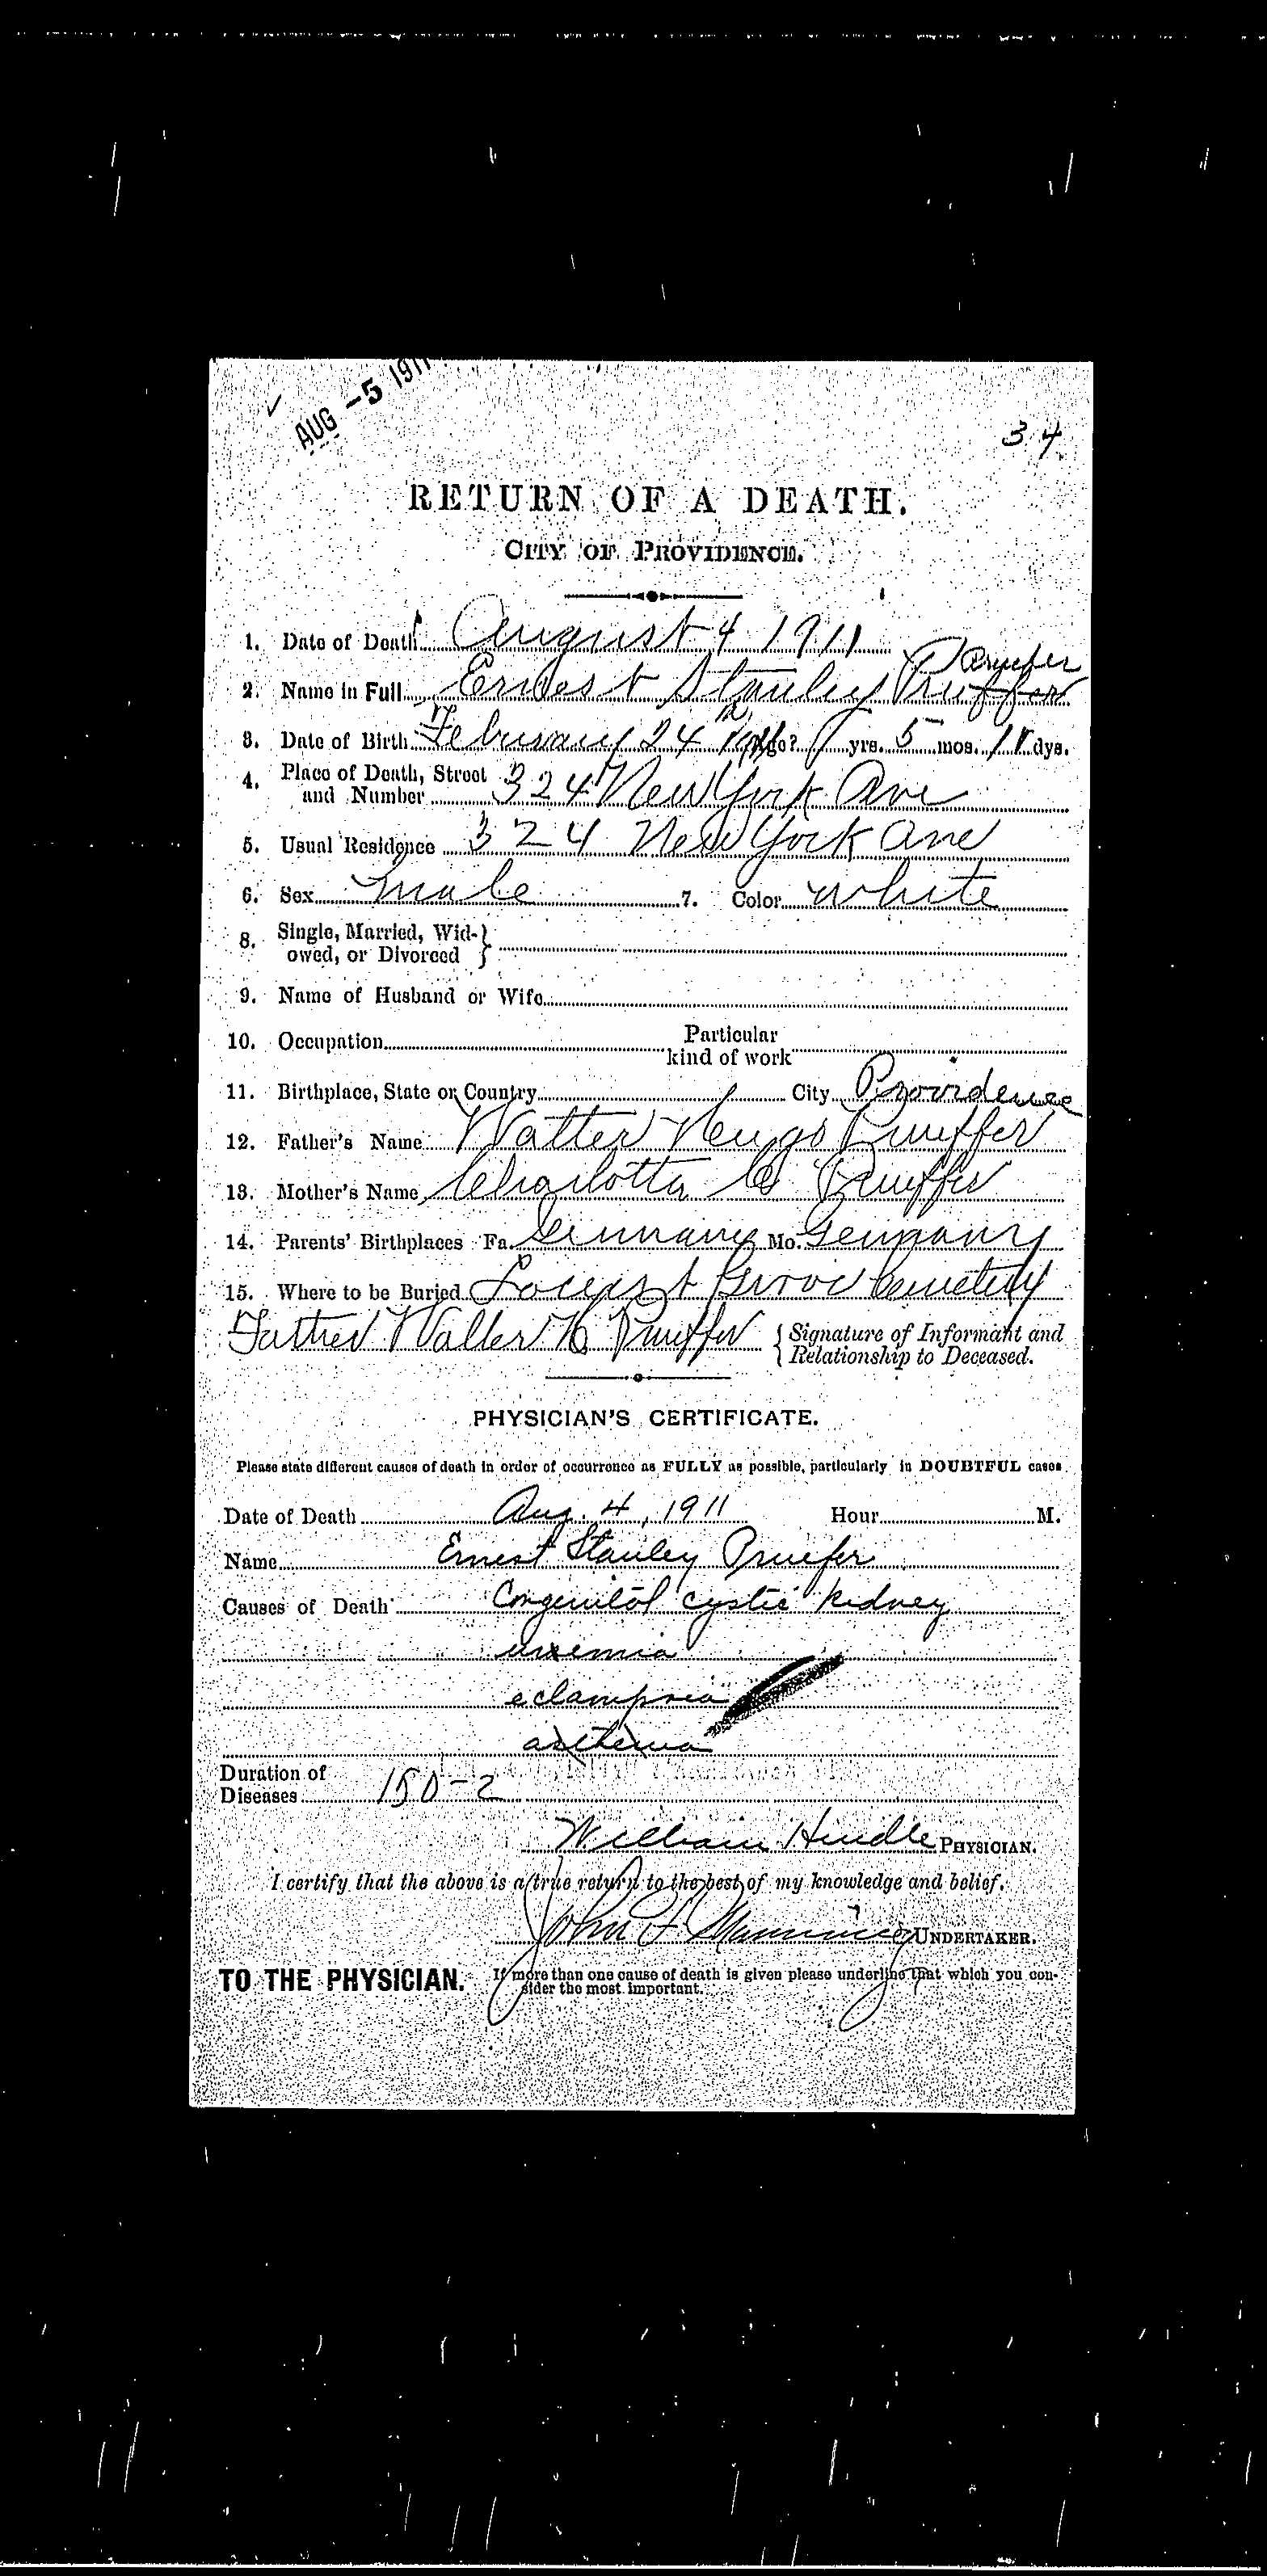 AUG -5 1911
34
RETURN OF A DEATH.
CITY OF PROVIDENCE.
1. Date of Death August 4 1911
Pruefer
2. Name in Full Ernest Stanley Prueffer
3. Date of Birth February 24 Age? yrs. 5 mos. 11 dys.
4. Place of Death, Street and Number 324 New York Ave
5. Usual Residence 324 New York Ave
6. Sex male 7. Color white
8. Single, Married, Wid-
owed, or Divorced
9. Name of Husband or Wife
10. Occupation Particular
kind of work
11. Birthplace, State or Country City Providence
12. Father's Name Walter Hugo Prueffer
13. Mother's Name Charlotta Prueffer
14. Parents' Birthplaces Fa. Germany Mo. Germany
15. Where to be Buried Locust Grove Cemetery
Father Walter H Prueffer { Signature of Informant and
Relationship to Deceased.
PHYSICIAN'S CERTIFICATE.
Please state different causes of death in order of occurrence as FULLY as possible, particularly in DOUBTFUL cases
Date of Death Aug. 4, 1911 Hour M.
Name Ernest Stanley Pruefer
Causes of Death Congenital cystic kidney
uremia
eclampsia
asthenia
Duration of
Diseases 150-2
William Hindle PHYSICIAN.
I certify that the above is a true return to the best of my knowledge and belief.
John F Manning UNDERTAKER.
TO THE PHYSICIAN. If more than one cause of death is given please underline that which you con-
sider the most important.